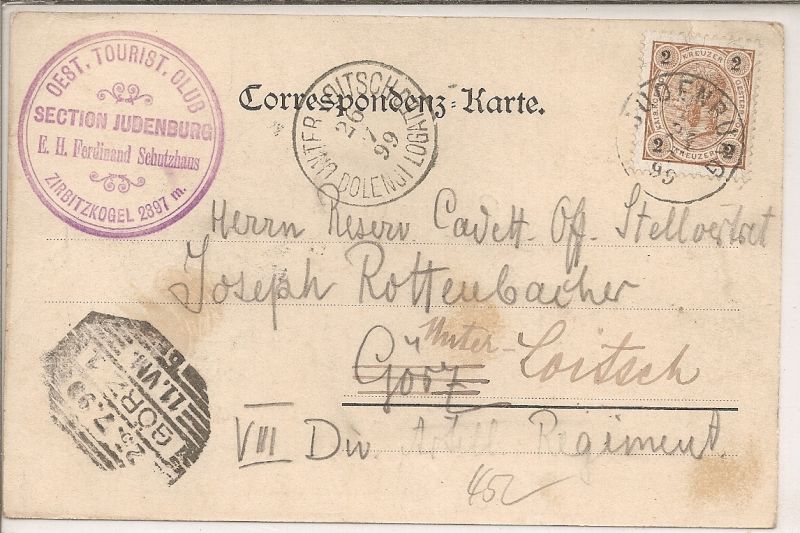 OEST. TOURIST. CLUB
SECTION JUDENBURG
E. H. Ferdinand Schutzhaus
ZIRBITZKOGEL 2397 m.
Correspondenz-Karte.
UNTER LOITSCH
26
7
99
DOLENJI LOGATEC
KREUZER
2 2
2 2
KREUZER
JUDENBURG
99
Herrn Reserv. Cadett. Off. Stellvertret
Joseph Rottenbacher
Görz Unter-Loitsch
VIII Div. Artill Regiment.
452
GÖRZ 1
25.7.99
11.VM